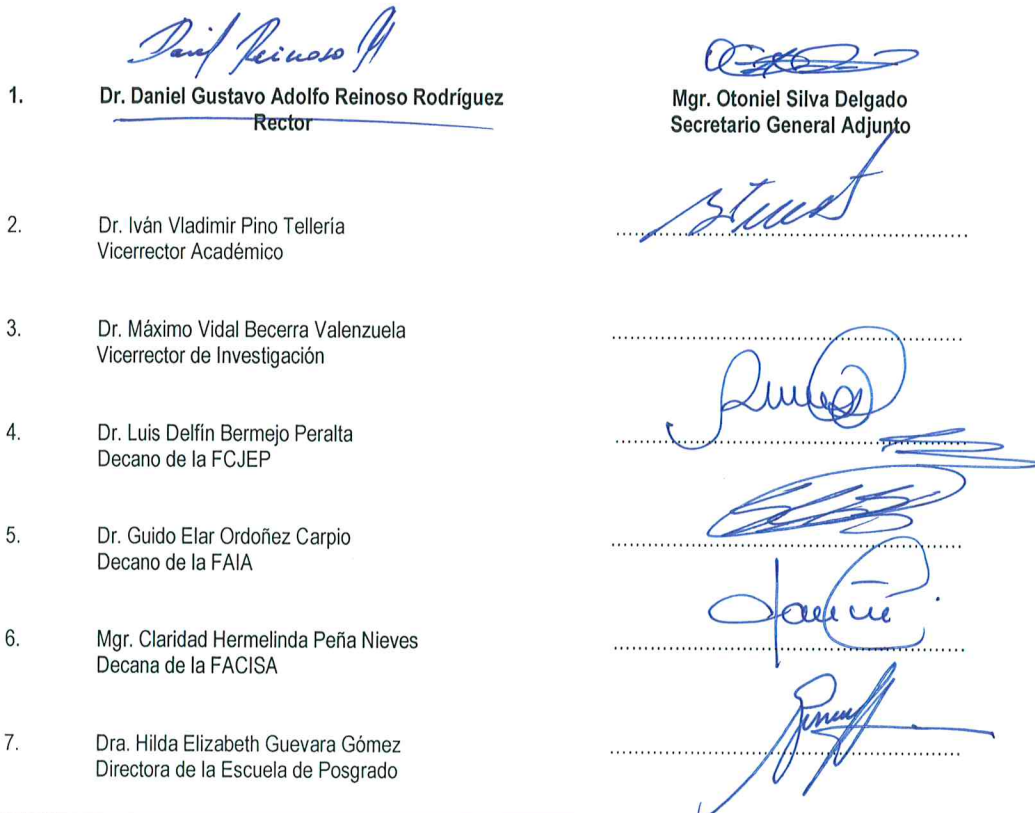 Daniel Reinoso
1. Dr. Daniel Gustavo Adolfo Reinoso Rodríguez
Rector
Mgr. Otoniel Silva Delgado
Secretario General Adjunto
2. Dr. Iván Vladimir Pino Tellería
Vicerrector Académico
3. Dr. Máximo Vidal Becerra Valenzuela
Vicerrector de Investigación
4. Dr. Luis Delfín Bermejo Peralta
Decano de la FCJEP
5. Dr. Guido Elar Ordoñez Carpio
Decano de la FAIA
6. Mgr. Claridad Hermelinda Peña Nieves
Decana de la FACISA
7. Dra. Hilda Elizabeth Guevara Gómez
Directora de la Escuela de Posgrado